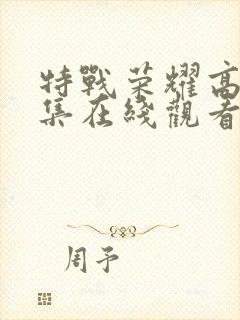 特戰荣耀高
集在綫觀看
周予